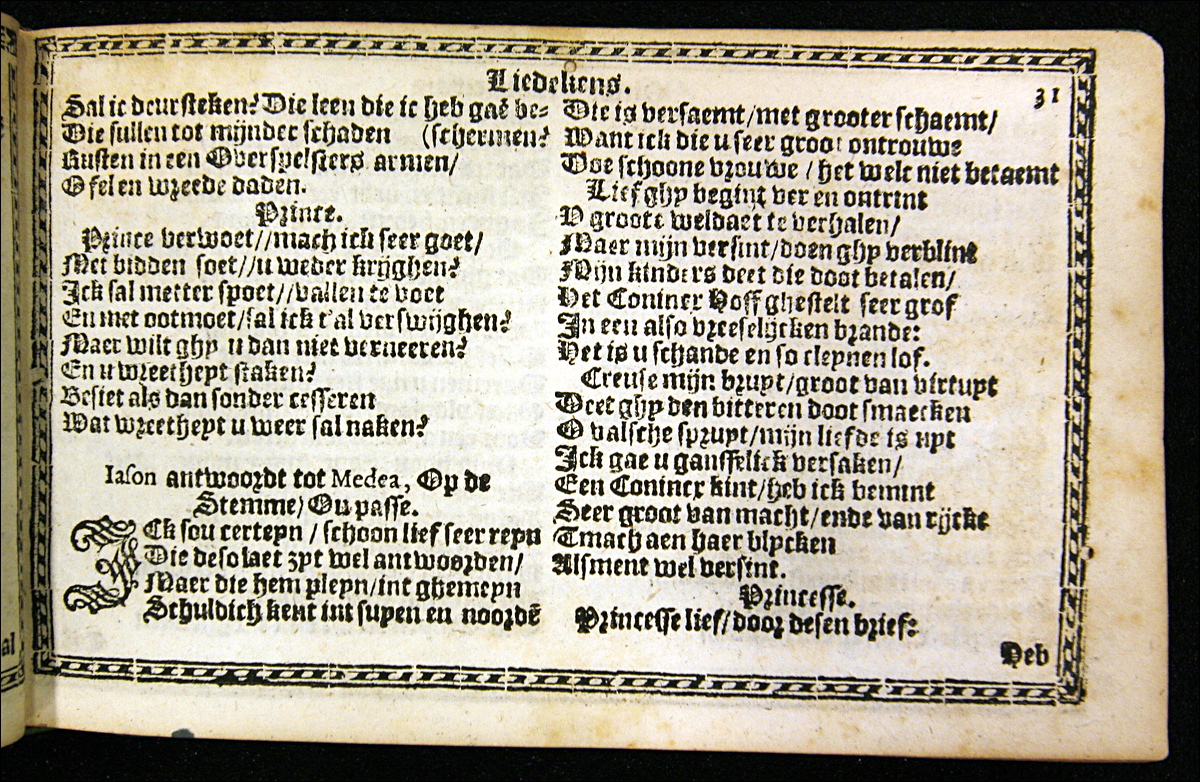 Liedekens.
31
Sal ic deursteken? Die leen die ic heb gaē be-
Die sullen tot mijnder schaden (schermen?
Rusten in een Overspelsters armen/
O fel en wreede daden.
Prince.
Prince verwoet//mach ick seer goet/
Met bidden soet//u weder krijghen?
Ick sal metter spoet//vallen te voet
En met ootmoet/sal ick t'al verswijghen?
Maer wilt ghy u dan niet verneeren?
En u wreetheyt staken?
Besiet als dan sonder cesseren
Wat wreetheyt u weer sal naken?
Iason antwoordt tot Medea, Op de
Stemme/ Ou passe.
ICk sou certeyn / schoon lief seer reyn
Die desolaet zyt wel antwoorden/
Maer die hem pleyn/int ghemeyn
Schuldich kent int supen en noordē
Die is versaemt/met grooter schaemt/
Want ick die u seer groot ontrouwe
Doe schoone vrouwe / het welc niet betaemt
Lief ghy begint ver en ontrint
V groote weldaet te verhalen/
Maer mijn versint/doen ghy verblint
Mijn kinders deet die doot betalen/
Het Coninex Hoff ghestelt seer grof
In een also vreeselycken brande:
Het is u schande en so cleynen lof.
Creuse mijn bruyt/groot van virtuyt
Deet ghy den bitteren doot smaecken
O valsche spruyt/mijn liefde is uyt
Ick gae u gansselick versaken/
Een Coninex kint/heb ick bemint
Seer groot van macht/ende van rijcke
Tmach aen haer blycken
Alsment wel versint.
Princesse.
Princesse lief/door desen brief:
Heb